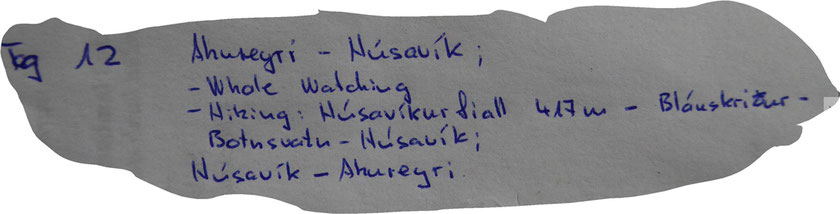 Tag 12 Akureyri - Húsavík;
- Whale Watching
- Hiking: Húsavíkurfjall 417m - Bláuskriður -
Botnsvatn - Húsavík;
Húsavík - Akureyri.